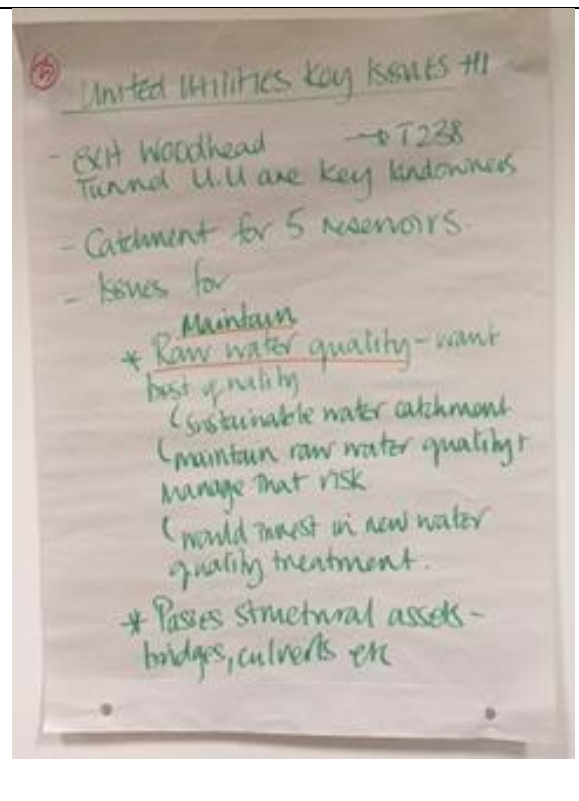 5
United Utilities Key Issues #1
- Exit Woodhead → T238
Tunnel U.U are key landowners
- Catchment for 5 reservoirs.
- Issues for
Maintain
* Raw water quality - want
best quality
(sustainable water catchment
(maintain raw water quality +
manage that risk
(would invest in new water
quality treatment.
* Passes structural assets -
bridges, culverts etc